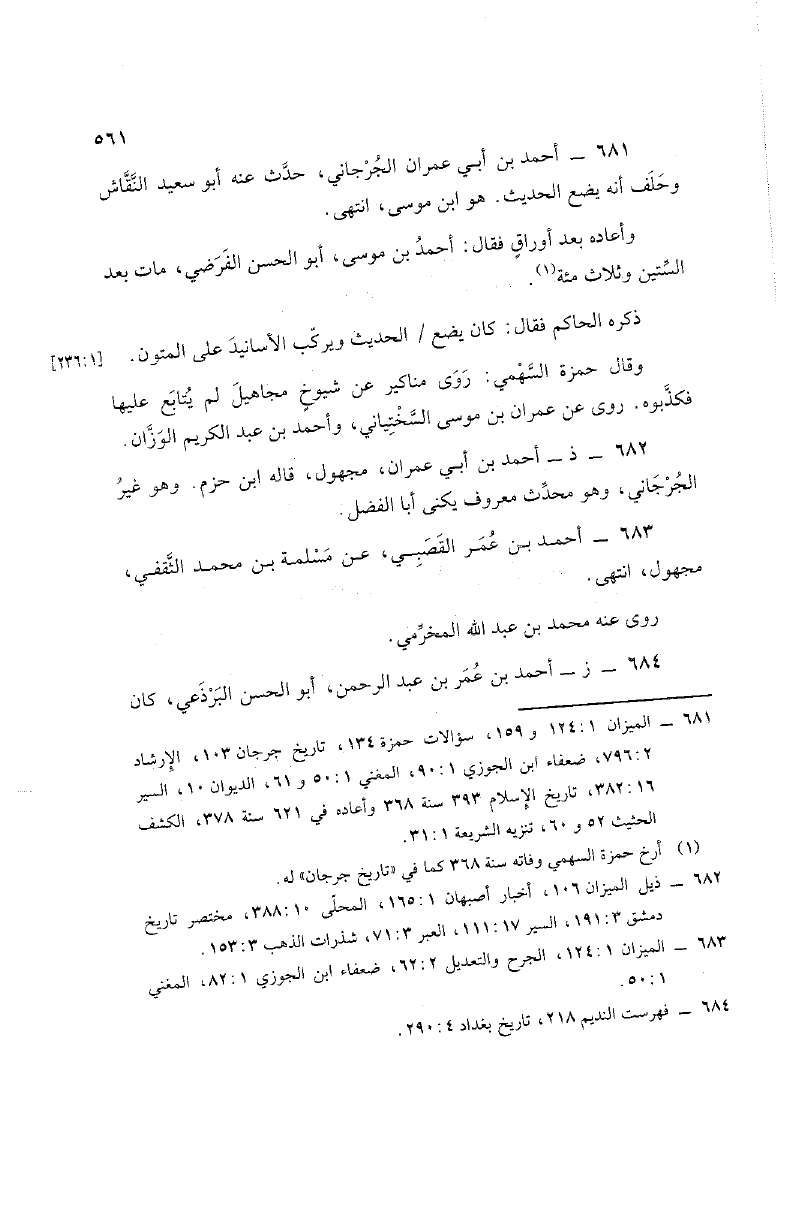 ٥٦١
٦٨١ ــ أحمد بن أبي عمران الجُرْجاني، حدَّث عنه أبو سعيد النَّقَّاش
وحَلَف أنه يضع الحديث. هو ابن موسى، انتهى.
وأعاده بعد أوراقٍ فقال: أحمدُ بن موسى، أبو الحسن الفَرَضي، مات بعد
السِّتين وثلاث مئة(١).
ذكره الحاكم فقال: كان يضع / الحديث ويركّب الأسانيدَ على المتون. [٢٣٦:١]
وقال حمزة السَّهْمي: رَوَى مناكير عن شيوخٍ مجاهيلَ لم يُتابَع عليها
فكذَّبوه. روى عن عمران بن موسى السَّخْتِياني، وأحمد بن عبد الكريم الوَزَّان.
٦٨٢ ــ ذ ــ أحمد بن أبي عمران، مجهول، قاله ابن حزم. وهو غيرُ
الجُرْجَاني، وهو محدِّث معروف يكنى أبا الفضل.
٦٨٣ ــ أحمد بن عُمَر القَصَبِي، عن مَسْلمة بن محمد الثَّقفي،
مجهول، انتهى.
روى عنه محمد بن عبد الله المخرِّمي.
٦٨٤ ــ ز ــ أحمد بن عُمَر بن عبد الرحمن، أبو الحسن البَرْذَعي، كان
٦٨١ ــ الميزان ١٢٤:١ و ١٥٩، سؤالات حمزة ١٣٤، تاريخ جرجان ١٠٣، الإرشاد
٧٩٦:٢، ضعفاء ابن الجوزي ٩٠:١، المغني ٥٠:١ و ٦١، الديوان ١٠، السير
٣٨٢:١٦، تاريخ الإسلام ٣٩٣ سنة ٣٦٨ وأعاده في ٦٢١ سنة ٣٧٨، الكشف
الحثيث ٥٢ و ٦٠، تنزيه الشريعة ٣١:١.
(١) أرخ حمزة السهمي وفاته سنة ٣٦٨ كما في «تاريخ جرجان» له.
٦٨٢ ــ ذيل الميزان ١٠٦، أخبار أصبهان ١٦٥:١، المحلّى ٣٨٨:١٠، مختصر تاريخ
دمشق ١٩١:٣، السير ١١١:١٧، العبر ٧١:٣، شذرات الذهب ١٥٣:٣.
٦٨٣ ــ الميزان ١٢٤:١، الجرح والتعديل ٦٢:٢، ضعفاء ابن الجوزي ٨٢:١، المغني
٥٠:١.
٦٨٤ ــ فهرست النديم ٢١٨، تاريخ بغداد ٢٩٠:٤.